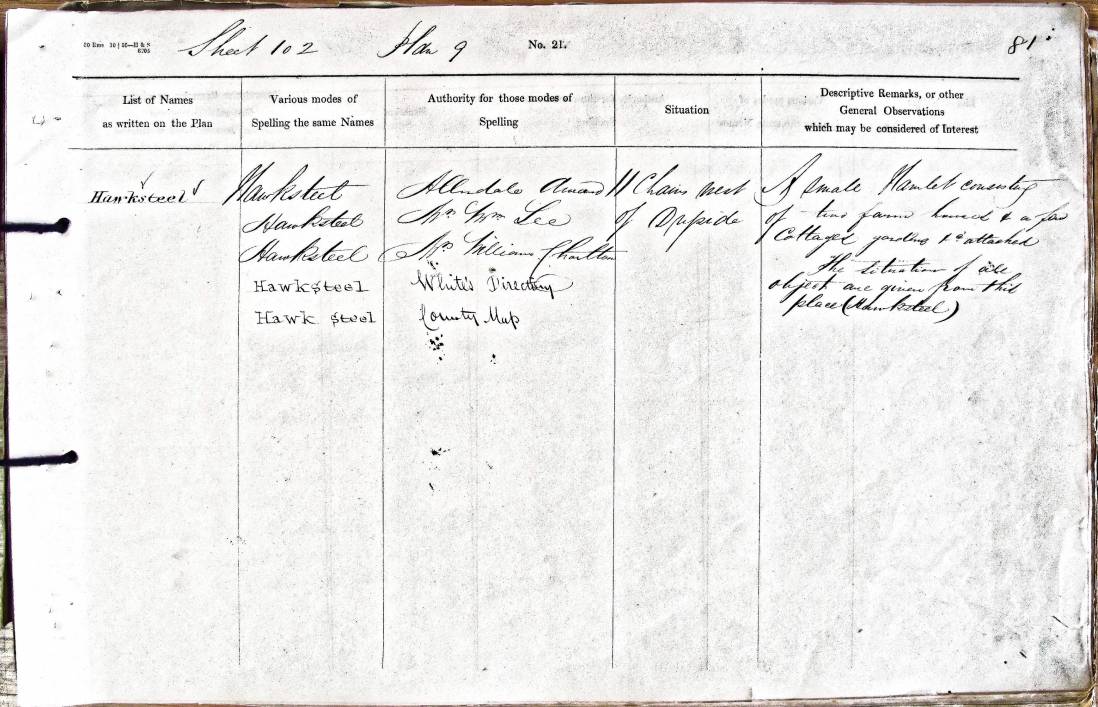 60 Rms 10 | 56—H & S
6705
Sheet 102 Plan 9 No. 21. 81
List of Names
as written on the Plan
Various modes of
Spelling the same Names
Authority for those modes of
Spelling
Situation
Descriptive Remarks, or other
General Observations
which may be considered of Interest
Hawksteel
Hawksteel
Hawksteel
Hawksteel
Hawksteel
Hawk steel
Allendale
Mr. Wm. Lee
Mr. William Charlton
White's Directory
County Map
11 Chains west
of Dryside
A small Hamlet consisting
of two farm houses & a few
Cottages gardens &c attached
The situation of all
objects are given from this
place (Hawksteel)